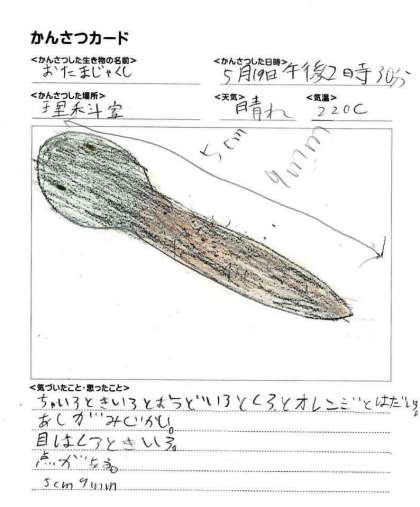 かんさつカード
<かんさつした生き物の名前>
おたまじゃくし
<かんさつした日時>
5月19日午後2日寺30分
<かんさつした場所>
理科室
<天気>
晴れ
<気温>
220C
5cm
9mm
<気づいたこと・思ったこと>
ちゃいろときいろとおうどいろとくろとオレンジとはだいろ。
あしがみじかい。
目はくろときいろ。
点がある。
5cm9mm